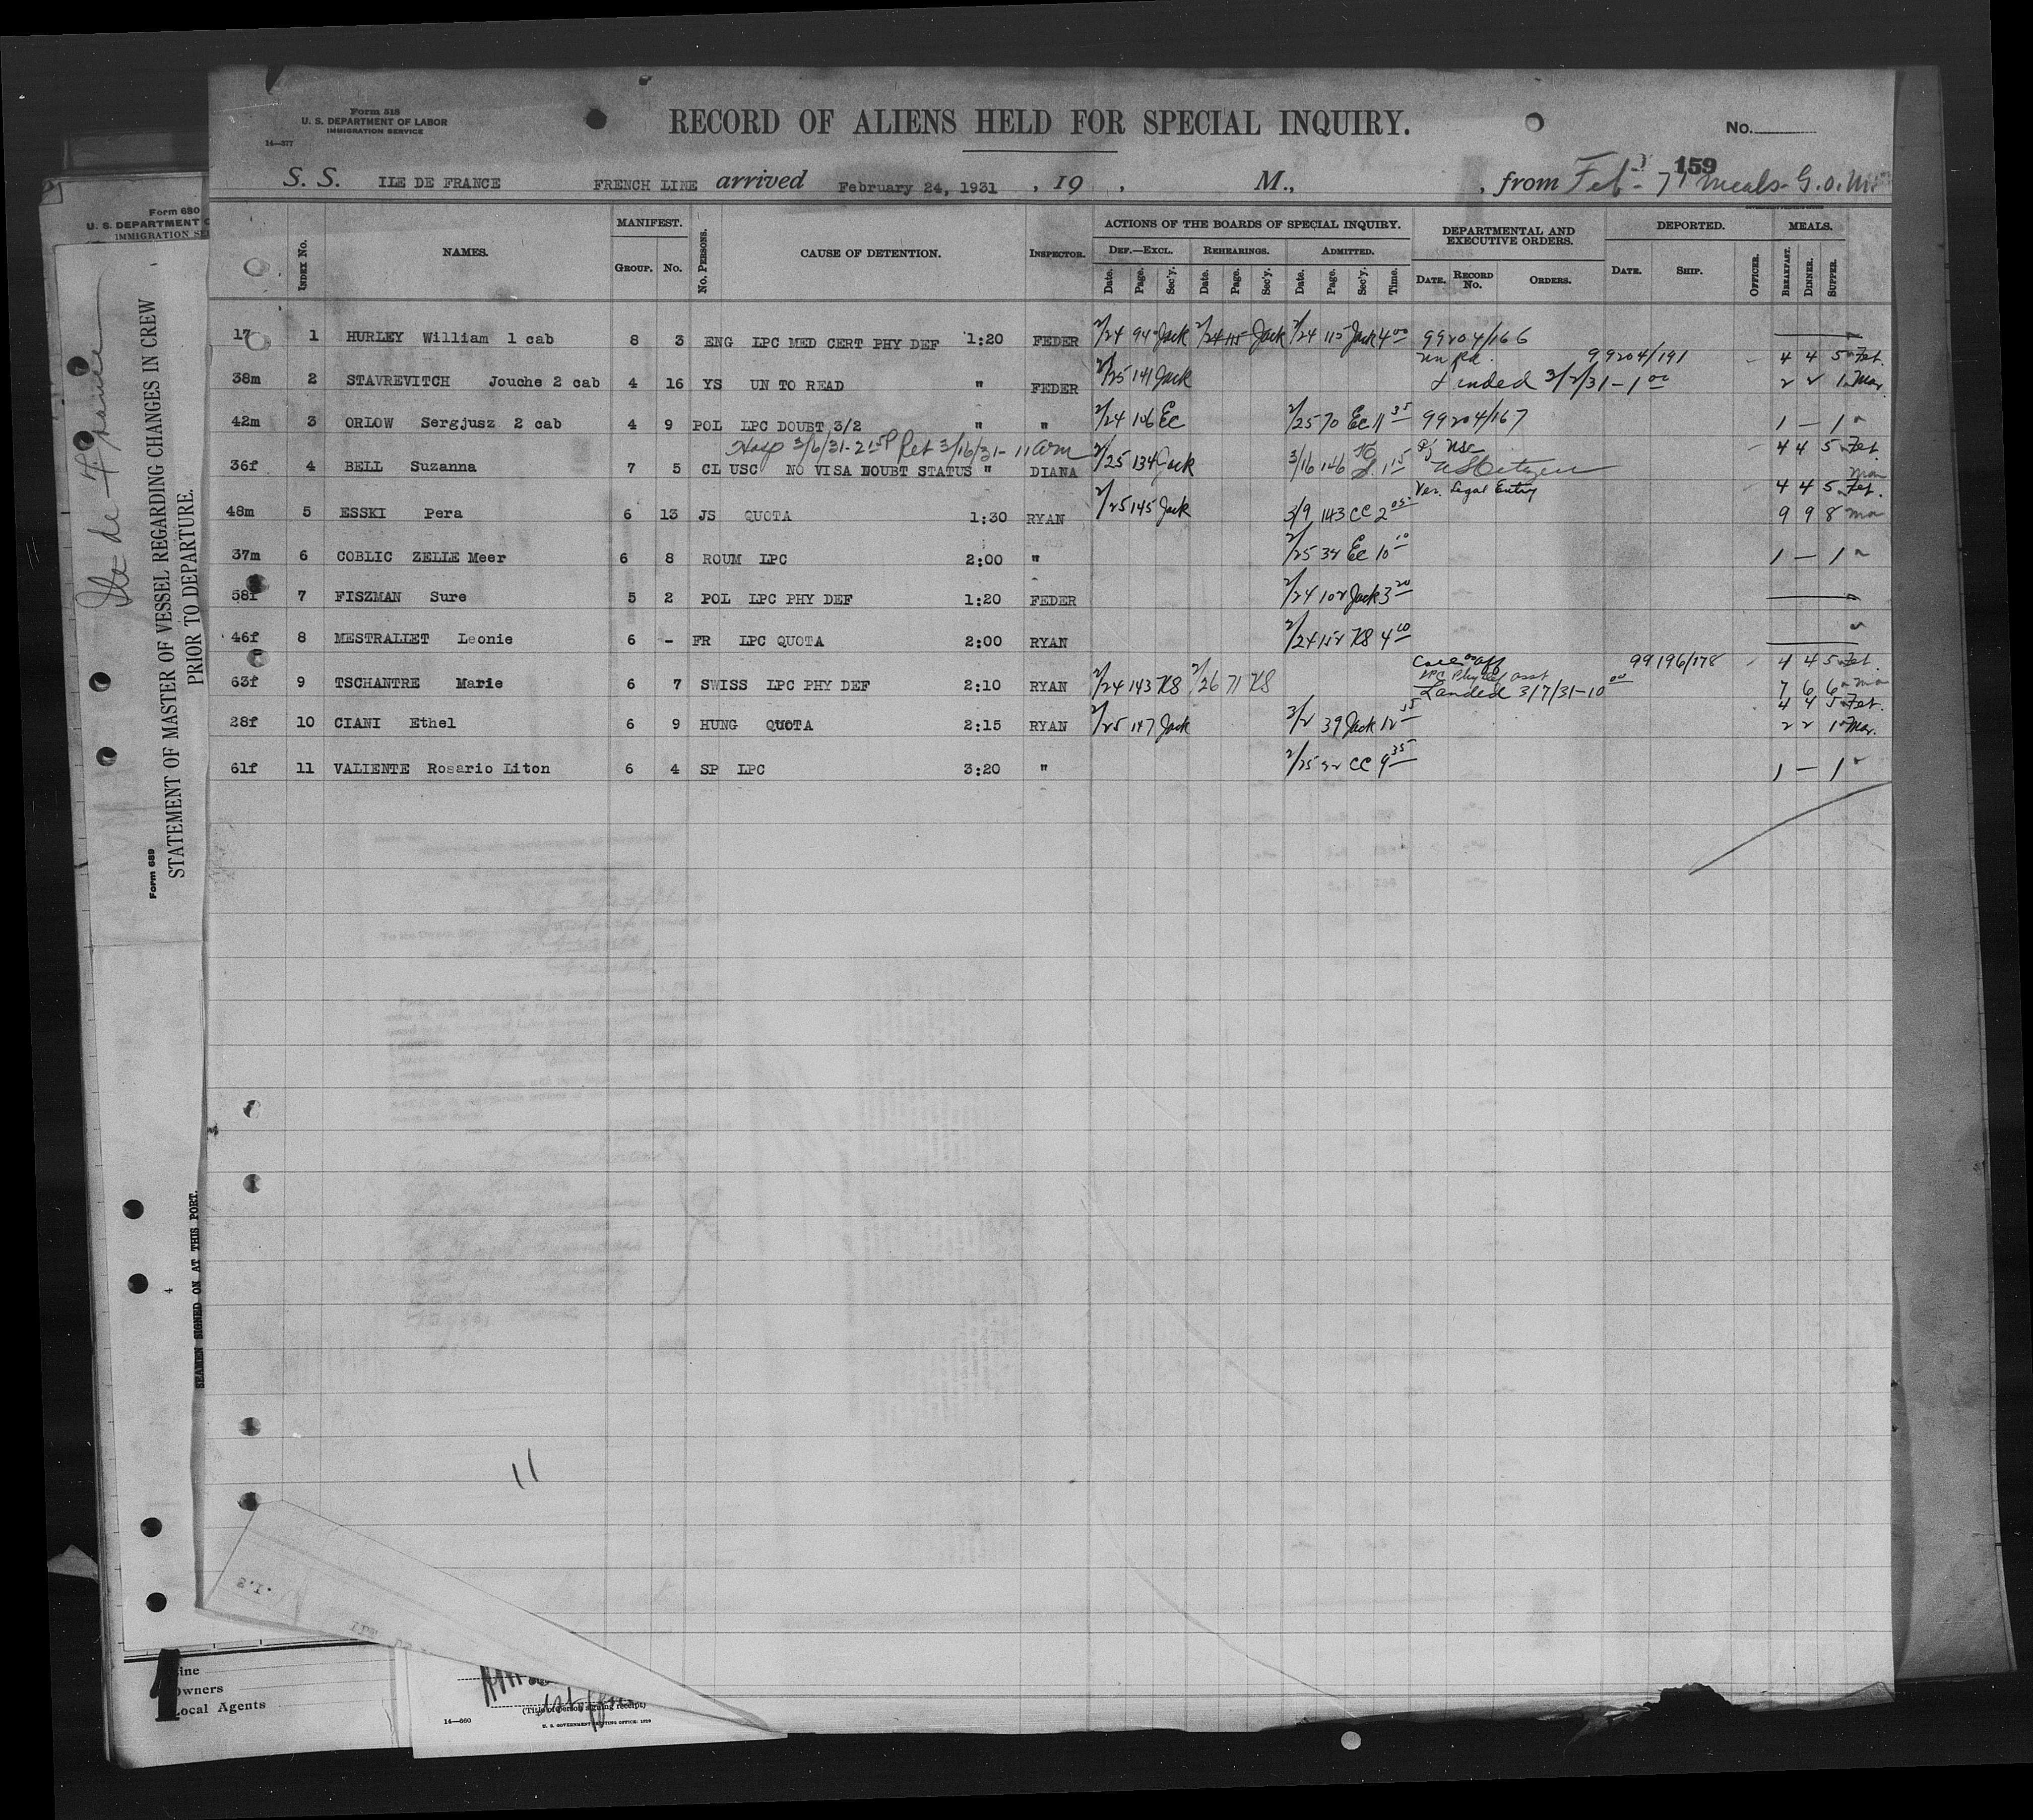 Form 518
U. S. DEPARTMENT OF LABOR
IMMIGRATION SERVICE
14—377
RECORD OF ALIENS HELD FOR SPECIAL INQUIRY.
No.
159
S. S. ILE DE FRANCE FRENCH LINE arrived February 24, 1931 , 19 , M., , from Feb - 71 meals - G.O.M.
INDEX No. NAMES. MANIFEST. GROUP. No. No. PERSONS. CAUSE OF DETENTION. INSPECTOR. ACTIONS OF THE BOARDS OF SPECIAL INQUIRY. DEPARTMENTAL AND EXECUTIVE ORDERS. DEPORTED. MEALS.
DEF.—EXCL. REHEARINGS. ADMITTED.
Date. Page. Sec'y. Date. Page. Sec'y. Date. Page. Sec'y. Time. DATE. RECORD No. ORDERS. DATE. SHIP. OFFICER. BREAKFAST. DINNER. SUPPER.
17 1 HURLEY William 1 cab 8 3 ENG LPC MED CERT PHY DEF 1:20 FEDER 2/24 94 Jack 2/24 115 Jack 2/24 115 Jack 4 00 99204/166
38m 2 STAVREVITCH Jouche 2 cab 4 16 YS UN TO READ " FEDER 2/25 141 Jack un Rd. 99204/191 4 4 5 Feb.
Landed 3/2/31 - 1 00 2 2 1 Mar.
42m 3 ORLOW Sergjusz 2 cab 4 9 POL LPC DOUBT 3/2 " " 2/24 106 Ec 2/25 70 Ec 11 35 99204/167 1 — 1
Hosp 3/6/31 - 2 15 P Ret 3/16/31 - 11 am
36f 4 BELL Suzanna 7 5 CL USC NO VISA DOUBT STATUS " DIANA 2/25 134 Jack 3/16 146 1 15 US Citizen 4 4 5 Feb.
48m 5 ESSKI Pera 6 13 JS QUOTA 1:30 RYAN 2/25 145 Jack 3/9 143 CC 2 05 Ver. Legal Entry 4 4 5 Feb.
9 9 8 Mar
37m 6 COBLIC ZELLE Meer 6 8 ROUM LPC 2:00 " 2/25 34 Ec 10 10 1 — 1
58f 7 FISZMAN Sure 5 2 POL LPC PHY DEF 1:20 FEDER 2/24 102 Jack 3 20
46f 8 MESTRALIET Leonie 6 - FR LPC QUOTA 2:00 RYAN 2/24 152 KS 4 10
63f 9 TSCHANTRE Marie 6 7 SWISS LPC PHY DEF 2:10 RYAN 2/24 143 KS 2/26 71 KS LPC Phy def asst 99196/178 4 4 5 Feb.
Landed 3/7/31 - 10 00 7 6 6 Mar
28f 10 CIANI Ethel 6 9 HUNG QUOTA 2:15 RYAN 2/25 147 Jack 3/2 39 Jack 12 15 4 4 5 Feb.
2 2 1 Mar.
61f 11 VALIENTE Rosario Liton 6 4 SP LPC 3:20 " 2/25 32 CC 9 35 1 — 1
11
Form 680
U. S. DEPARTMENT O
IMMIGRATION SE
Ile de France
Form 689
STATEMENT OF MASTER OF VESSEL REGARDING CHANGES IN CREW
PRIOR TO DEPARTURE.
4
SEAMEN SIGNED ON AT THIS PORT.
ine
Owners
Local Agents
(Title of person signing receipt)
14—660
U. S. GOVERNMENT PRINTING OFFICE: 1929